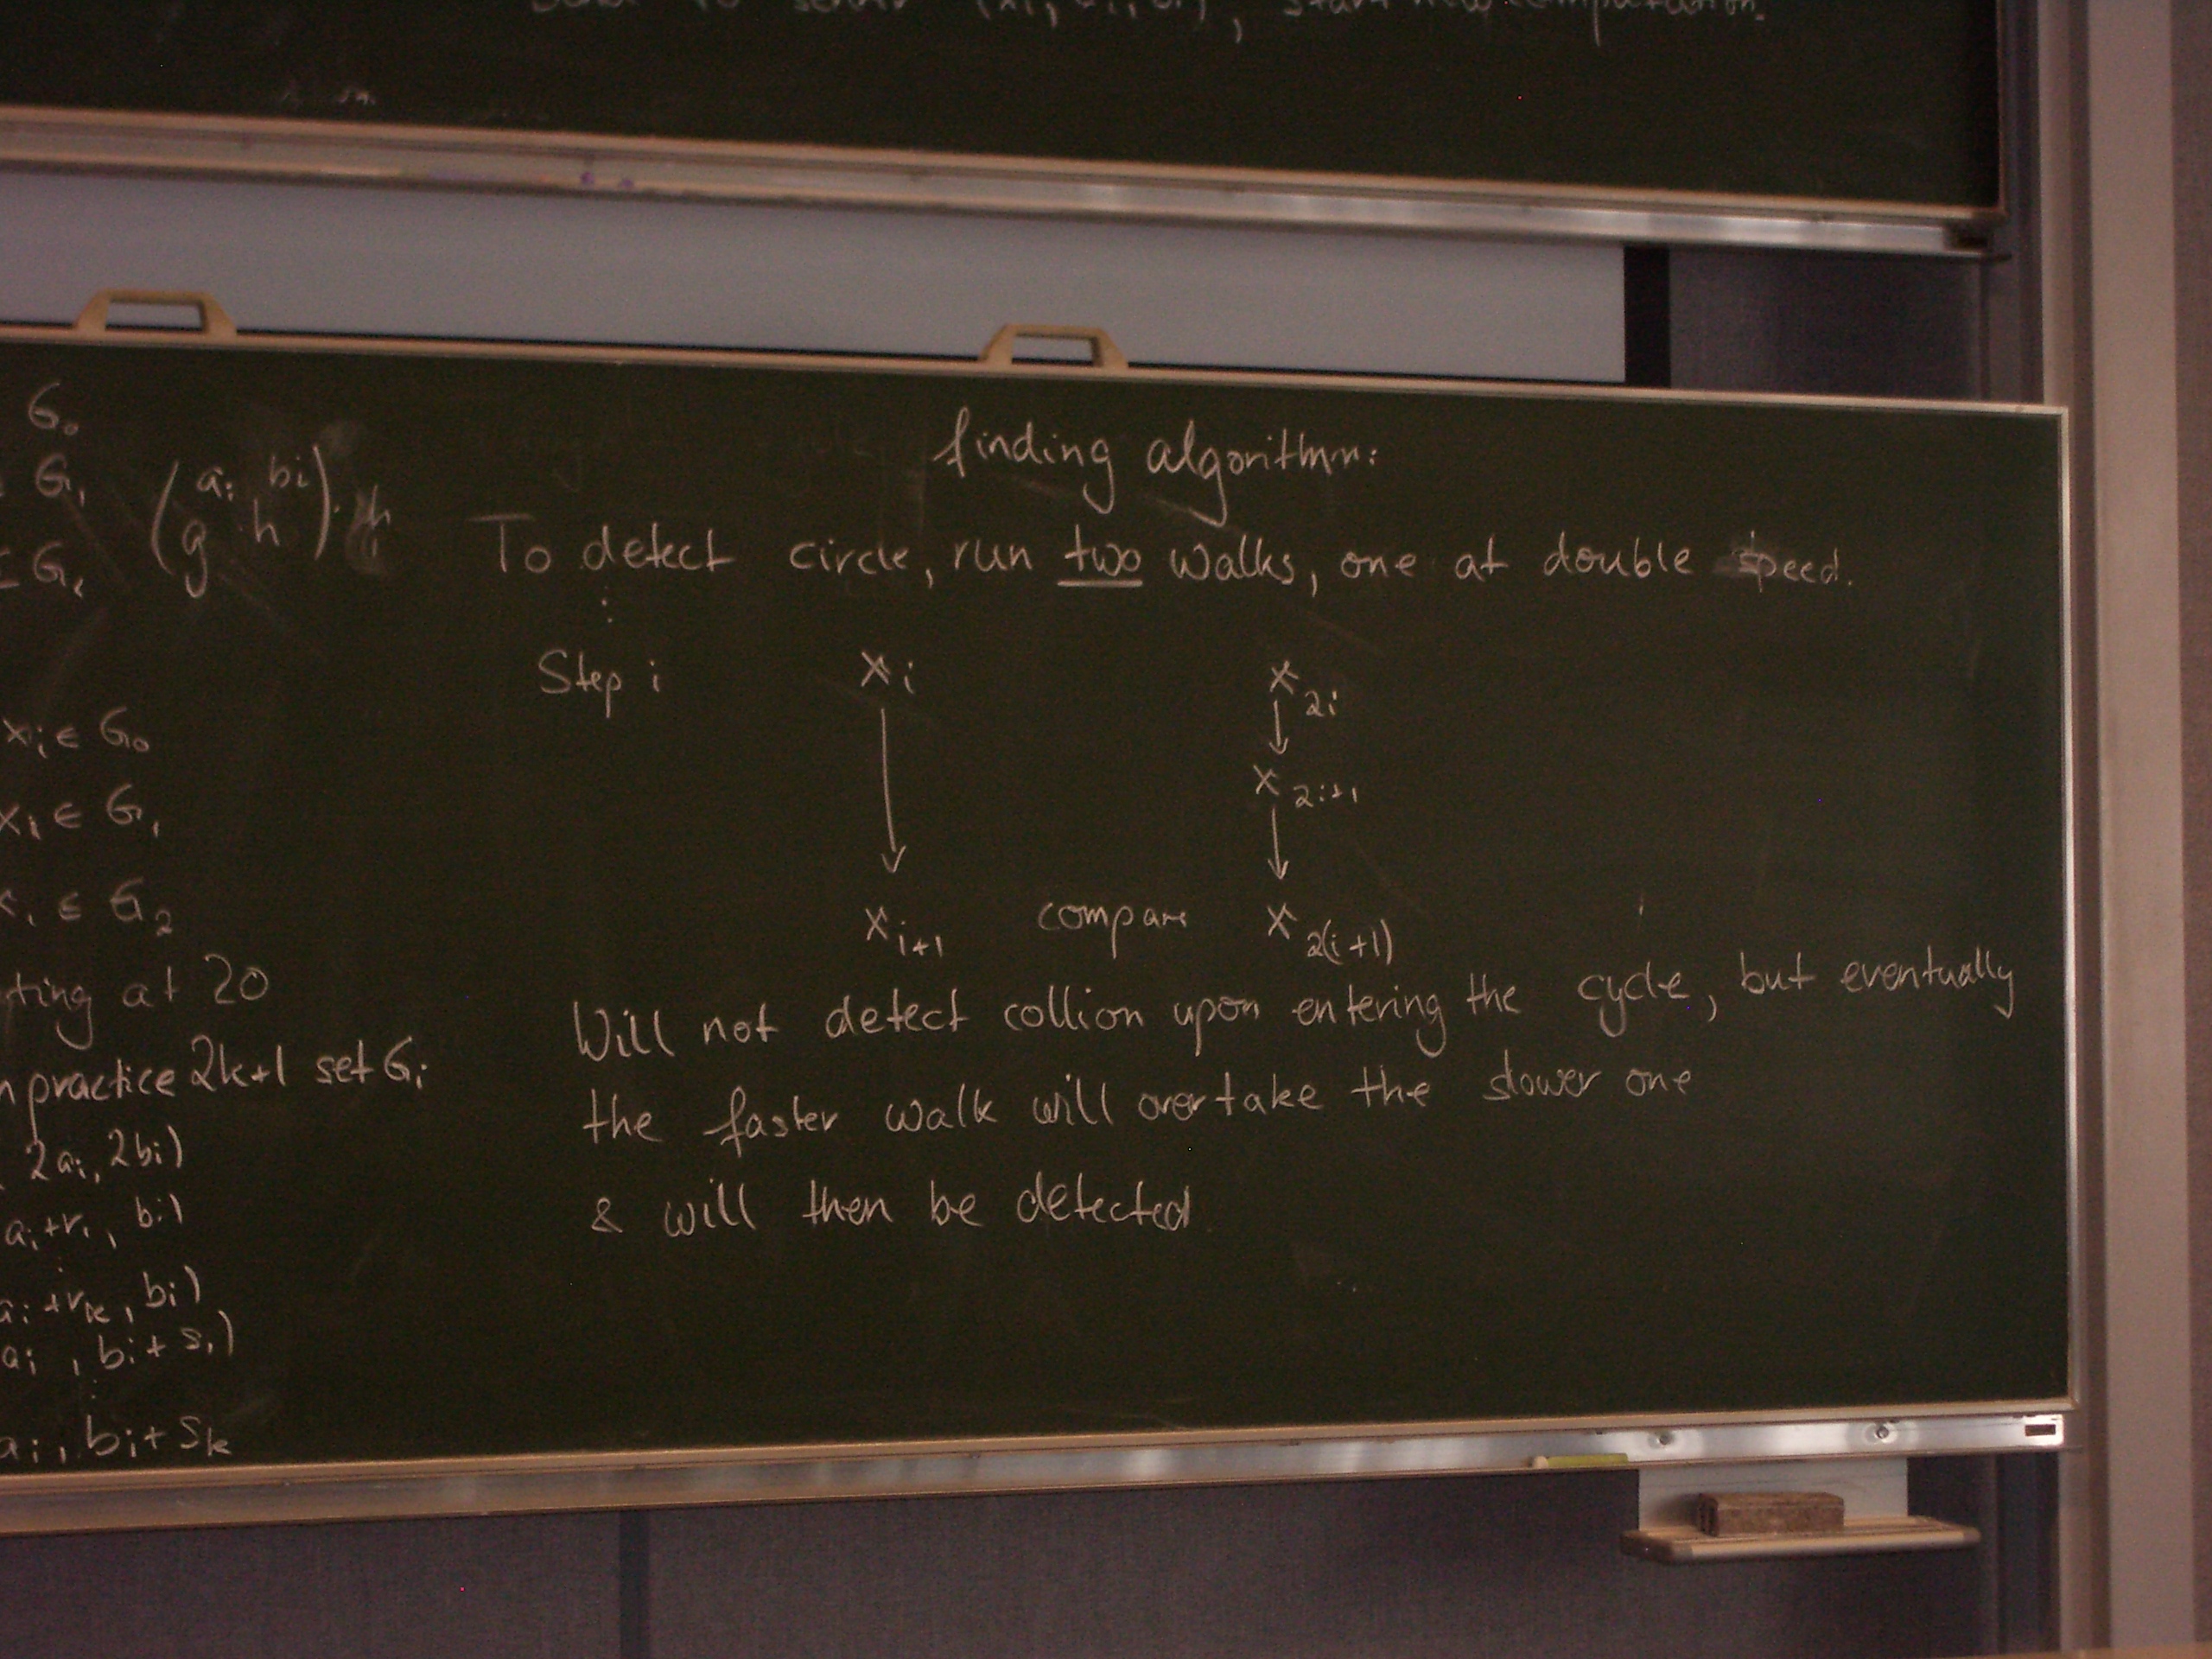 (xi, ai, bi), start new computation.
G0
G1 (g^ai h^bi)·h
∈ G1
xi ∈ G0
xi ∈ G1
∈ G2
at 20
practice 2k+1 set Gi
2ai, 2bi)
ai+r1, bi)
⋮
ai+rk, bi)
ai, bi+s1)
⋮
ai, bi+sk
finding algorithm:
To detect circle, run two walks, one at double speed.
⋮
Step i xi x2i
↓ ↓
x2i+1
↓
xi+1 compare x2(i+1)
Will not detect collion upon entering the cycle, but eventually
the faster walk will overtake the slower one
& will then be detected